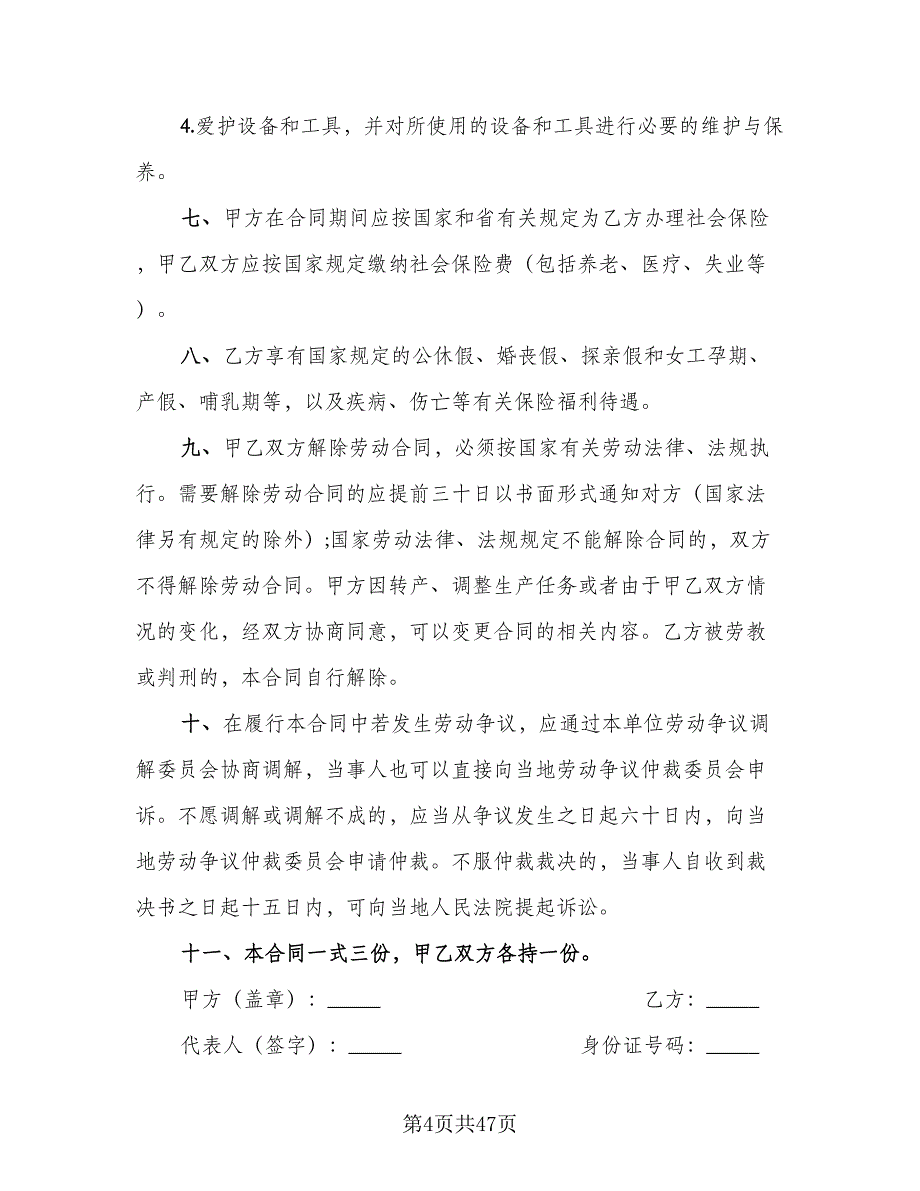 4.爱护设备和工具，并对所使用的设备和工具进行必要的维护与保
养。
七、甲方在合同期间应按国家和省有关规定为乙方办理社会保险
，甲乙双方应按国家规定缴纳社会保险费（包括养老、医疗、失业等
）。
八、乙方享有国家规定的公休假、婚丧假、探亲假和女工孕期、
产假、哺乳期等，以及疾病、伤亡等有关保险福利待遇。
九、甲乙双方解除劳动合同，必须按国家有关劳动法律、法规执
行。需要解除劳动合同的应提前三十日以书面形式通知对方（国家法
律另有规定的除外）;国家劳动法律、法规规定不能解除合同的，双方
不得解除劳动合同。甲方因转产、调整生产任务或者由于甲乙双方情
况的变化，经双方协商同意，可以变更合同的相关内容。乙方被劳教
或判刑的，本合同自行解除。
十、在履行本合同中若发生劳动争议，应通过本单位劳动争议调
解委员会协商调解，当事人也可以直接向当地劳动争议仲裁委员会申
诉。不愿调解或调解不成的，应当从争议发生之日起六十日内，向当
地劳动争议仲裁委员会申请仲裁。不服仲裁裁决的，当事人自收到裁
决书之日起十五日内，可向当地人民法院提起诉讼。
十一、本合同一式三份，甲乙双方各持一份。
甲方（盖章）：_____ 乙方：_____
代表人（签字）：_____ 身份证号码：_____
第4页共47页